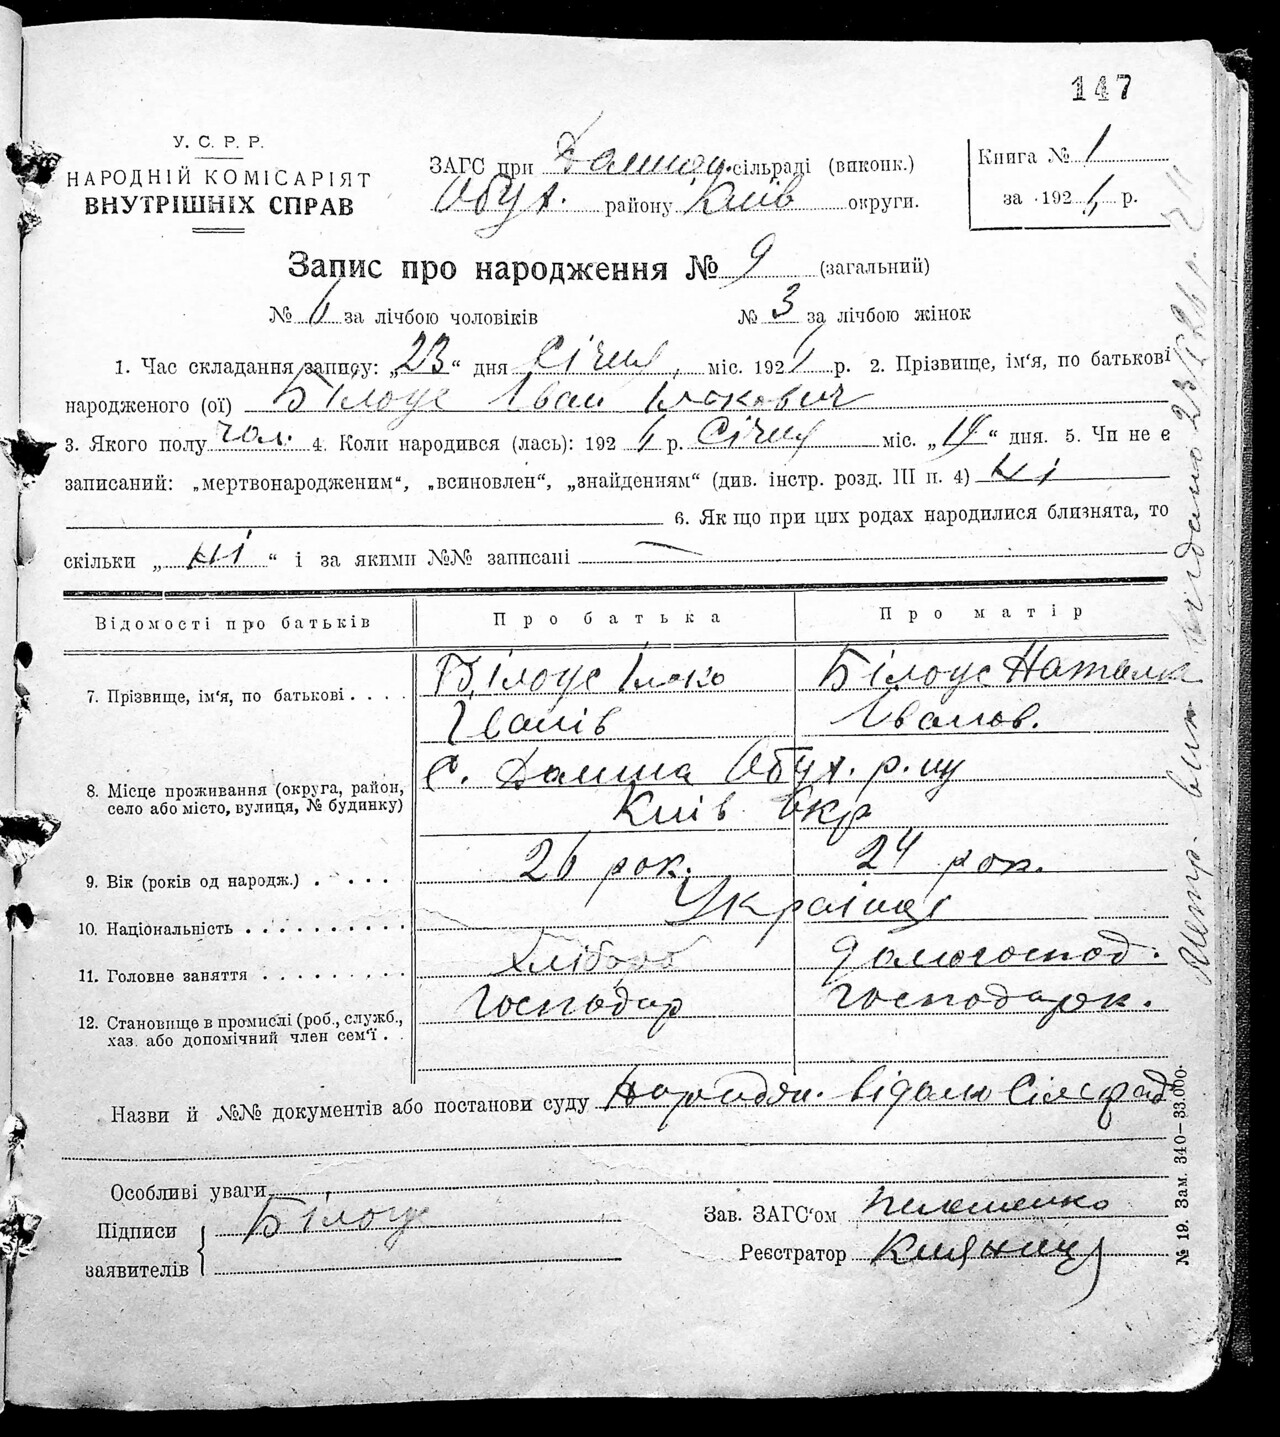 147
У. С. Р. Р.
НАРОДНІЙ КОМІСАРІЯТ
ВНУТРІШНІХ СПРАВ
ЗАГС при Долиня. сільраді (виконк.)
Обух. району Київ округи.
Книга № 1
за 192 6 р.
Запис про народження № 9 (загальний)
№ 6 за лічбою чоловіків № 3 за лічбою жінок
1. Час складання запису: „23“ дня Січня, міс. 192 6 р. 2. Прізвище, ім'я, по батькові
народженого (ої) Білоус Іван Ількович
3. Якого полу чол. 4. Коли народився (лась): 192 6 р. Січня міс. „19“ дня. 5. Чи не є
записаний: „мертвонародженим“, „всиновлен“, „знайденням“ (див. інстр. розд. III п. 4) ні
6. Як що при цих родах народилися близнята, то
скільки „ ні “ і за якими №№ записані —
Відомості про батьків Про батька Про матір
7. Прізвище, ім'я, по батькові . . . . Білоус Ілько Білоус Наталк
Іванів Іванов.
8. Місце проживання (округа, район, село або місто, вулиця, № будинку) С. Долина Обух. р. ну
Київ Окр
9. Вік (років од народж.) . . . . . 26 рок. 24 рок.
10. Національність . . . . . . . . . . Українці
11. Головне заняття . . . . . . . . . Хлібороб домогоспод.
12. Становище в промислі (роб., служб., хаз. або допомічний член сем'ї . . Господар господарк.
Назви й №№ документів або постанови суду відано Сільрад
Особливі уваги
Підписи
заявителів
Білоус
Зав. ЗАГС'ом
Реєстратор Кияниця
№ 19. Зам. 340—33.000.
Метр. вип. видано 23/I 26 р.